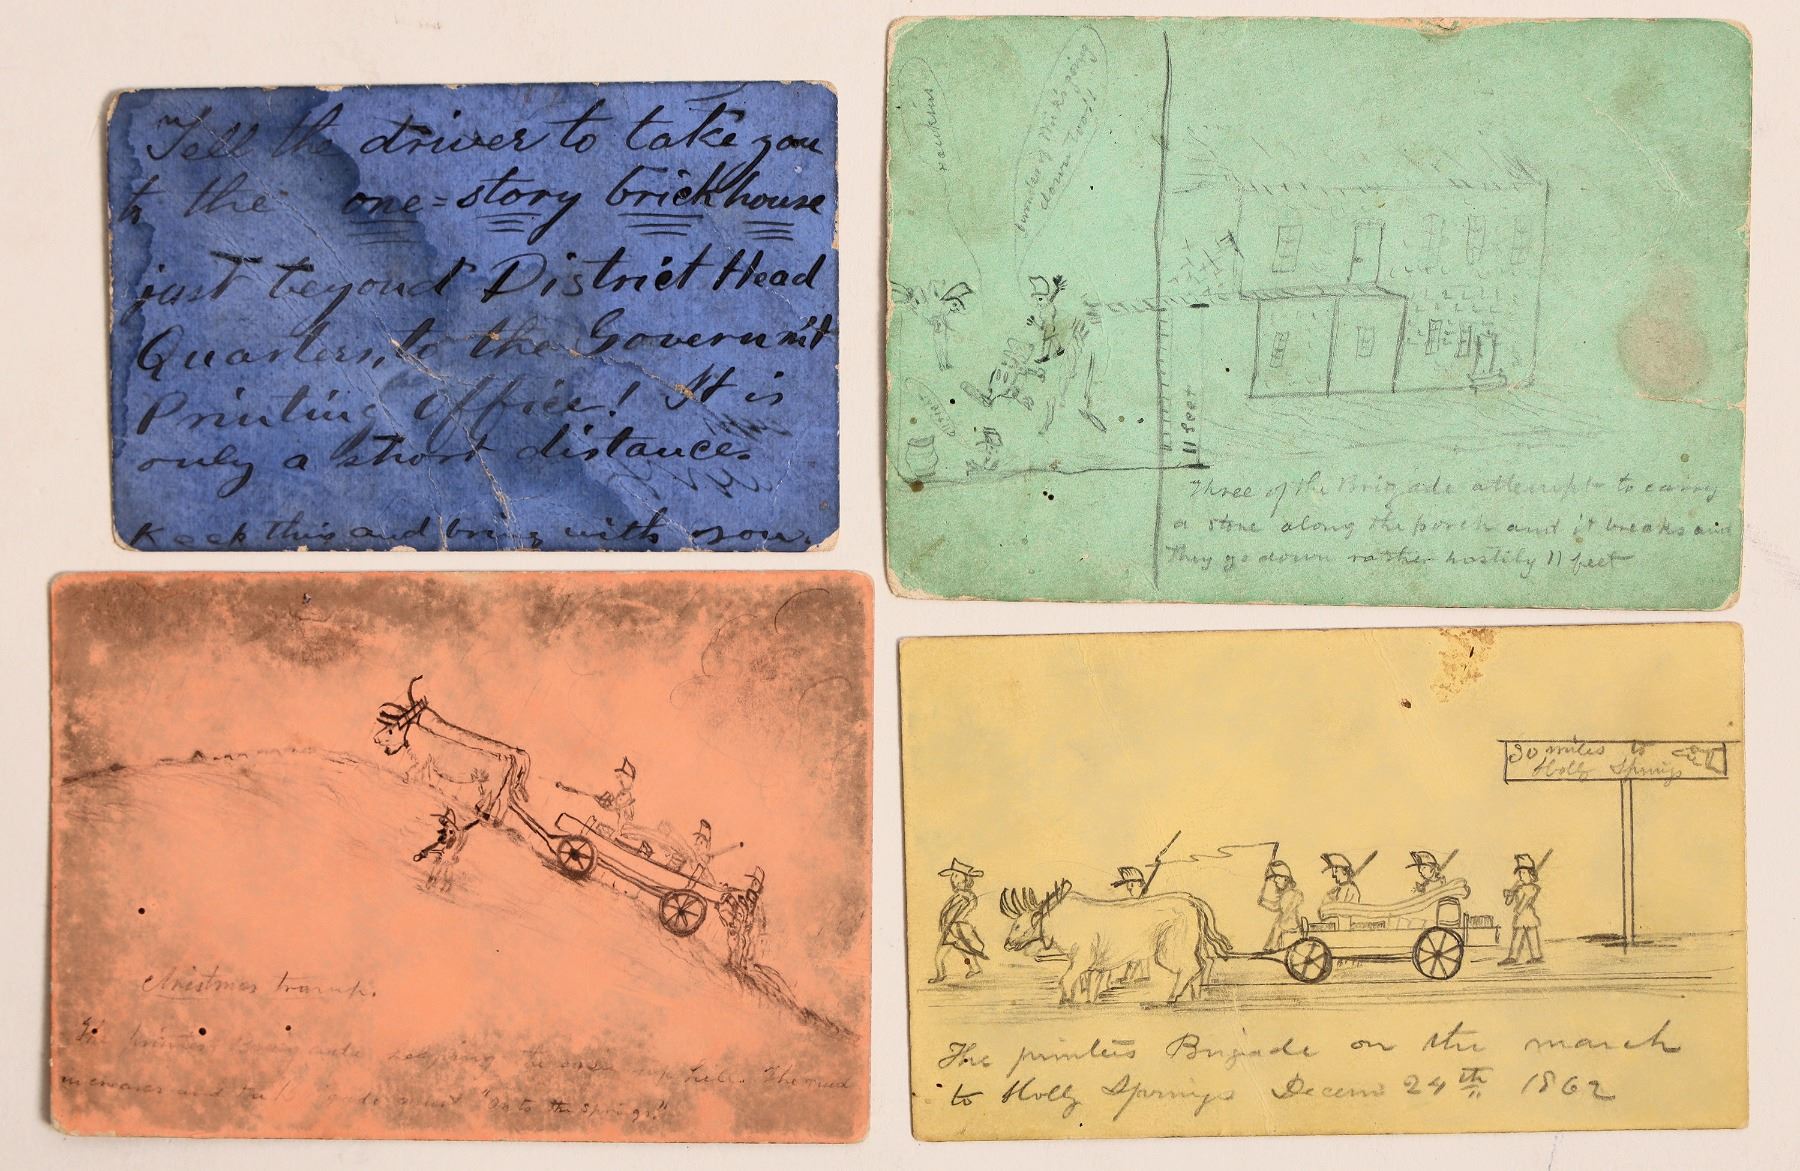 Tell the driver to take you
to the one=story brick house
just beyond District Head
Quarters, to the Governm't
Printing Office! It is
only a short distance.
Keep this and bring with you.
Hawkins
going
down
11 feet
Three of the Brigade attempt to carry
a stone along the porch and it breaks and
they go down rather hastily 11 feet
Christmas tramp.
The printers Brigade helping the oxen up hill. The mud
increases and the "On to the Springs!"
30 miles to
Holly Springs
The printers Brigade on the march
to Holly Springs Decem 24th 1862